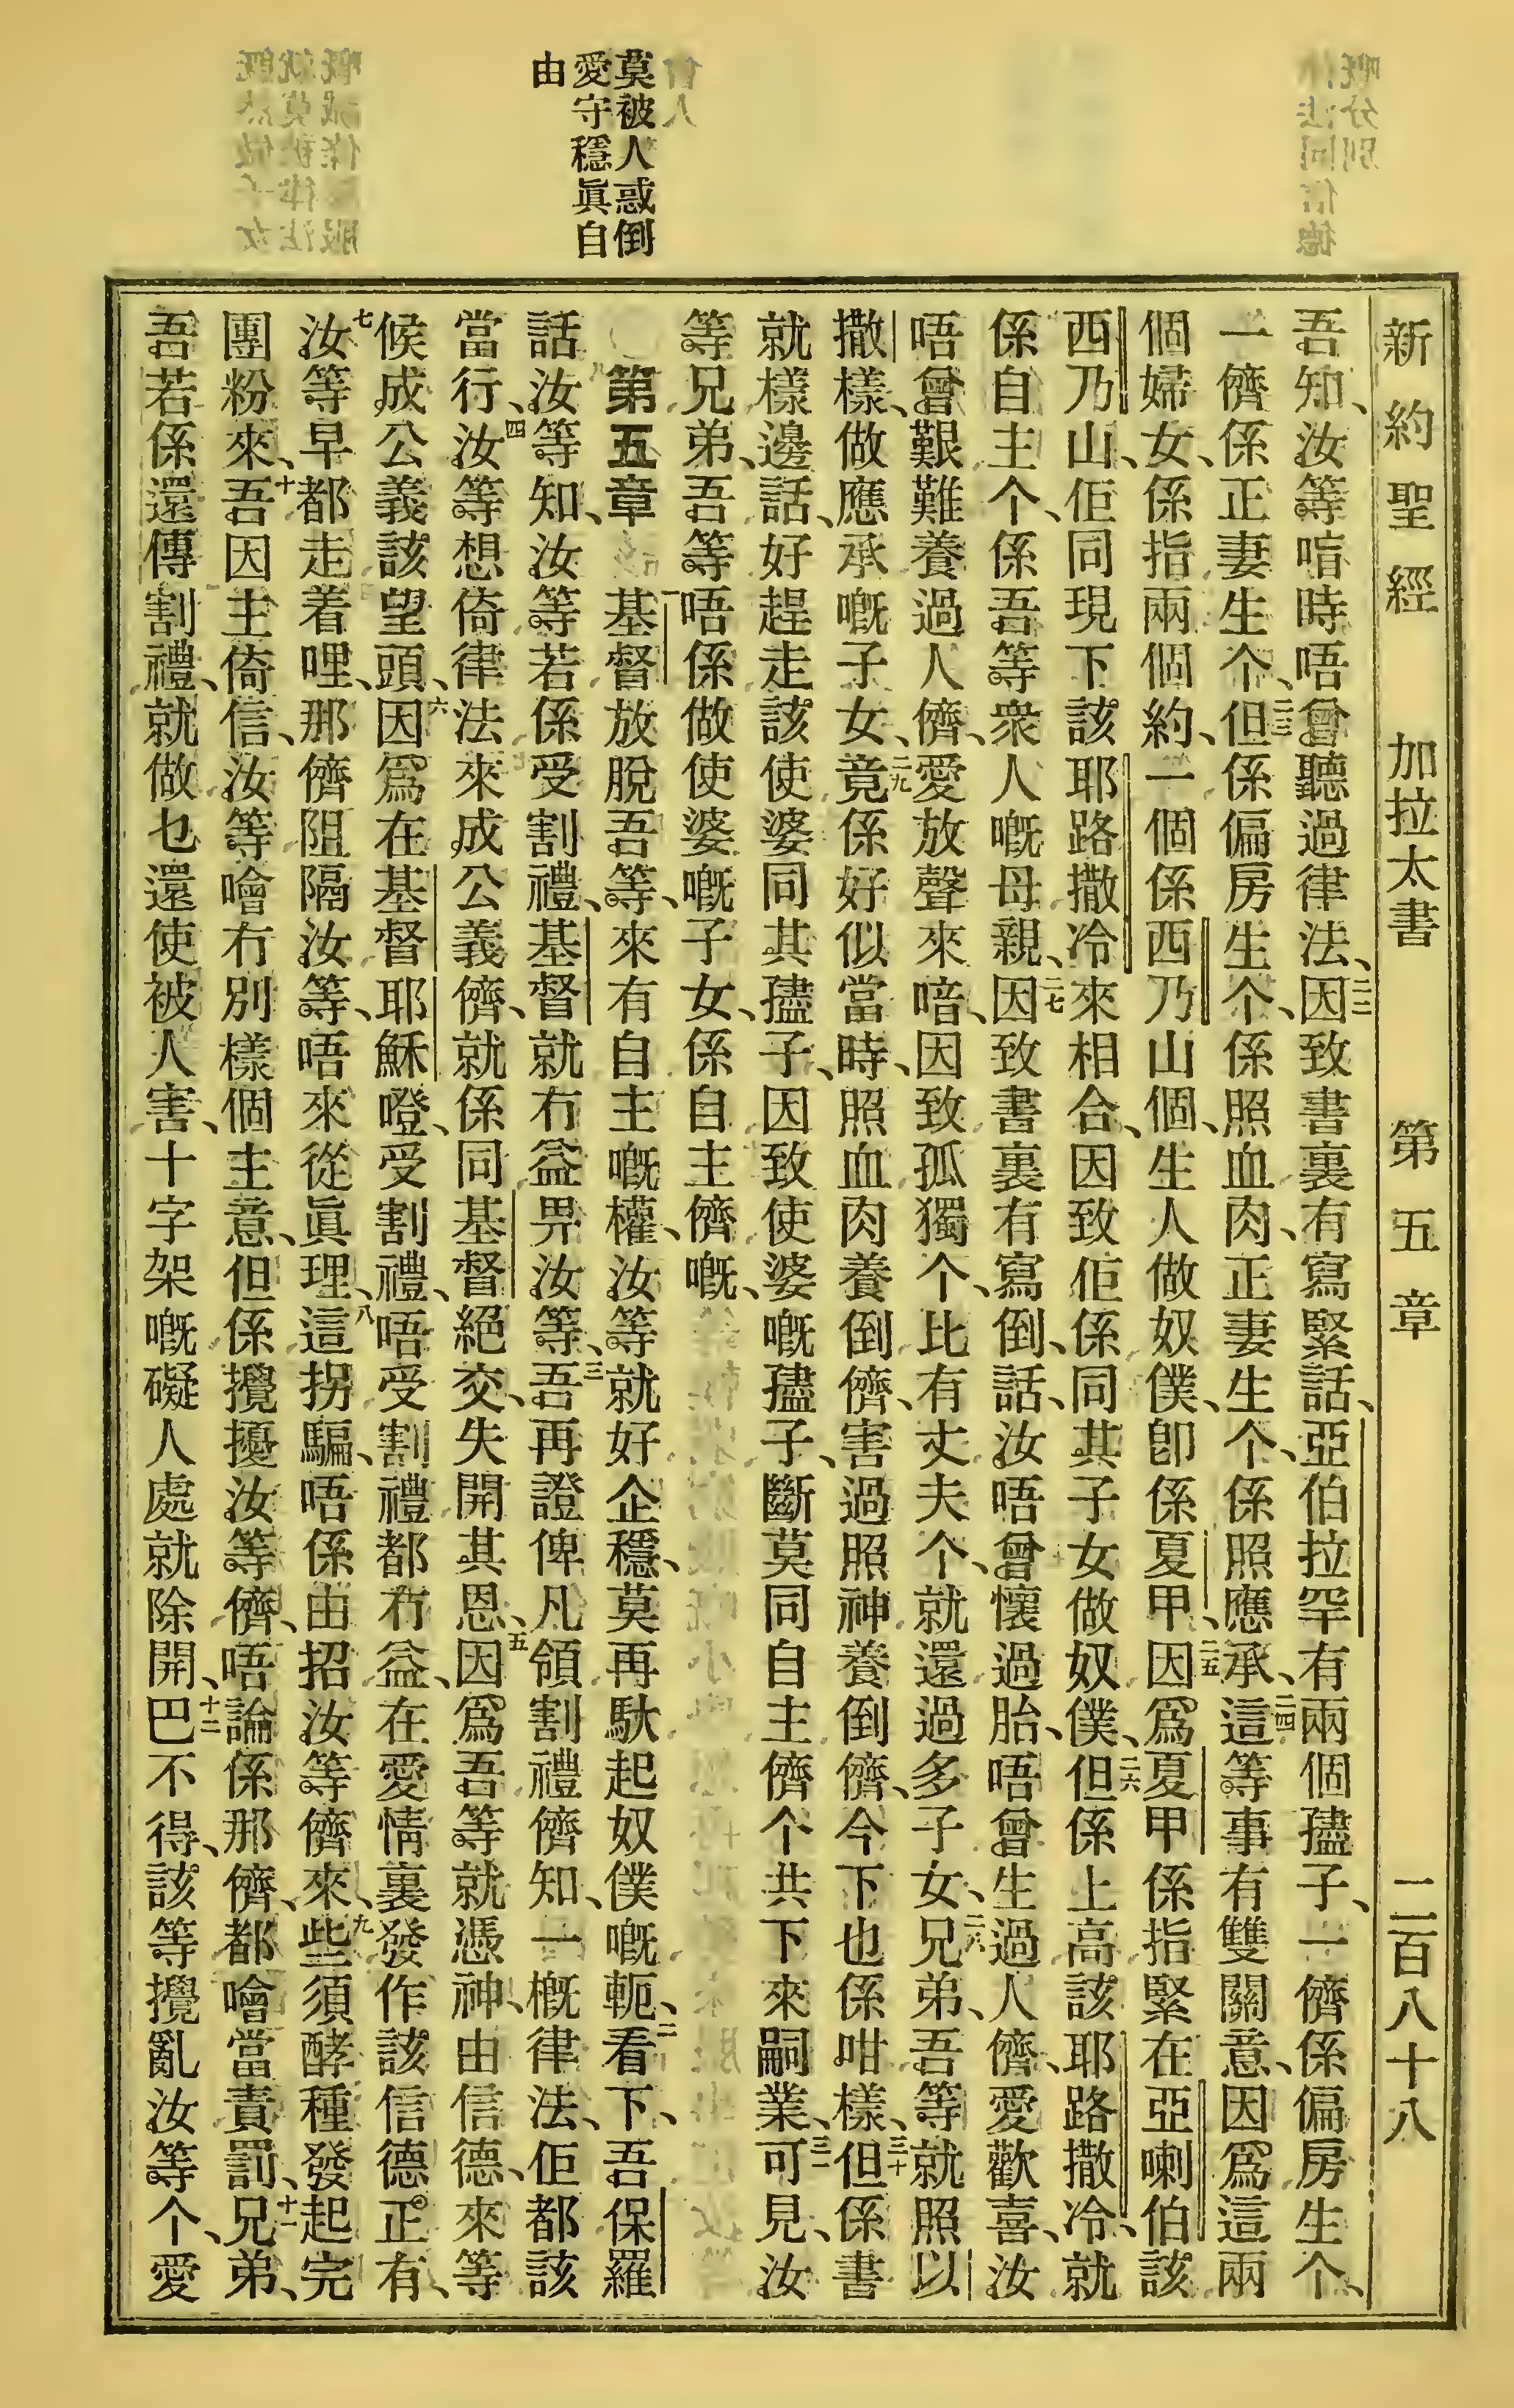 莫被人惑倒
愛守穩眞自
由
新約聖經 加拉太書 第五章 二百八十八
吾知、汝等喑時唔曾聽過律法、二二因致書裏有寫緊話、亞伯拉罕有兩個孻子、一儕係偏房生个、
一儕係正妻生个、二三但係偏房生个、係照血肉、正妻生个、係照應承、二四這等事有雙關意、因爲這兩
個婦女、係指兩個約、一個係西乃山個、生人做奴僕、卽係夏甲、二五因爲夏甲係指緊在亞喇伯該
西乃山、佢同現下該耶路撒冷來相合、因致佢係同其子女做奴僕、二六但係上高該耶路撒冷、就
係自主个、係吾等衆人嘅母親、二七因致書裏有寫倒、話、汝唔曾懷過胎、唔曾生過人儕、愛歡喜、汝
唔曾艱難養過人儕、愛放聲來喑、因致孤獨个、比有丈夫个、就還過多子女、二八兄弟、吾等就照以
撒樣、做應承嘅子女、二九竟係好似當時、照血肉養倒儕、害過照神養倒儕、今下也係咁樣、三十但係書
就樣邊話、好趕走該使婆同其孻子、因致使婆嘅孻子、斷莫同自主儕个共下來嗣業、三一可見、汝
等兄弟、吾等唔係做使婆嘅子女、係自主儕嘅、
第五章 一基督放脫吾等、來有自主嘅權、汝等就好企穩、莫再馱起奴僕嘅軛、二看下、吾保羅
話汝等知、汝等若係受割禮、基督就冇益畀汝等、三吾再證俾凡領割禮儕知、一概律法、佢都該
當行、四汝等想倚律法來成公義儕、就係同基督絕交、失開其恩、五因爲吾等就憑神、由信德、來等
候成公義該望頭、六因爲在基督耶穌嶝、受割禮、唔受割禮都冇益、在愛情裏發作該信德正有、
七汝等早都走着哩、那儕阻隔汝等、唔來從眞理、八這拐騙、唔係由招汝等儕來、九些須酵種發起完
團粉來、十吾因主倚信、汝等噲冇別樣個主意、但係攪擾汝等儕、唔論係那儕、都噲當責罰、十一兄弟、
吾若係還傳割禮、就做乜還使被人害、十字架嘅礙人處就除開、十二巴不得、該等攪亂汝等个、愛